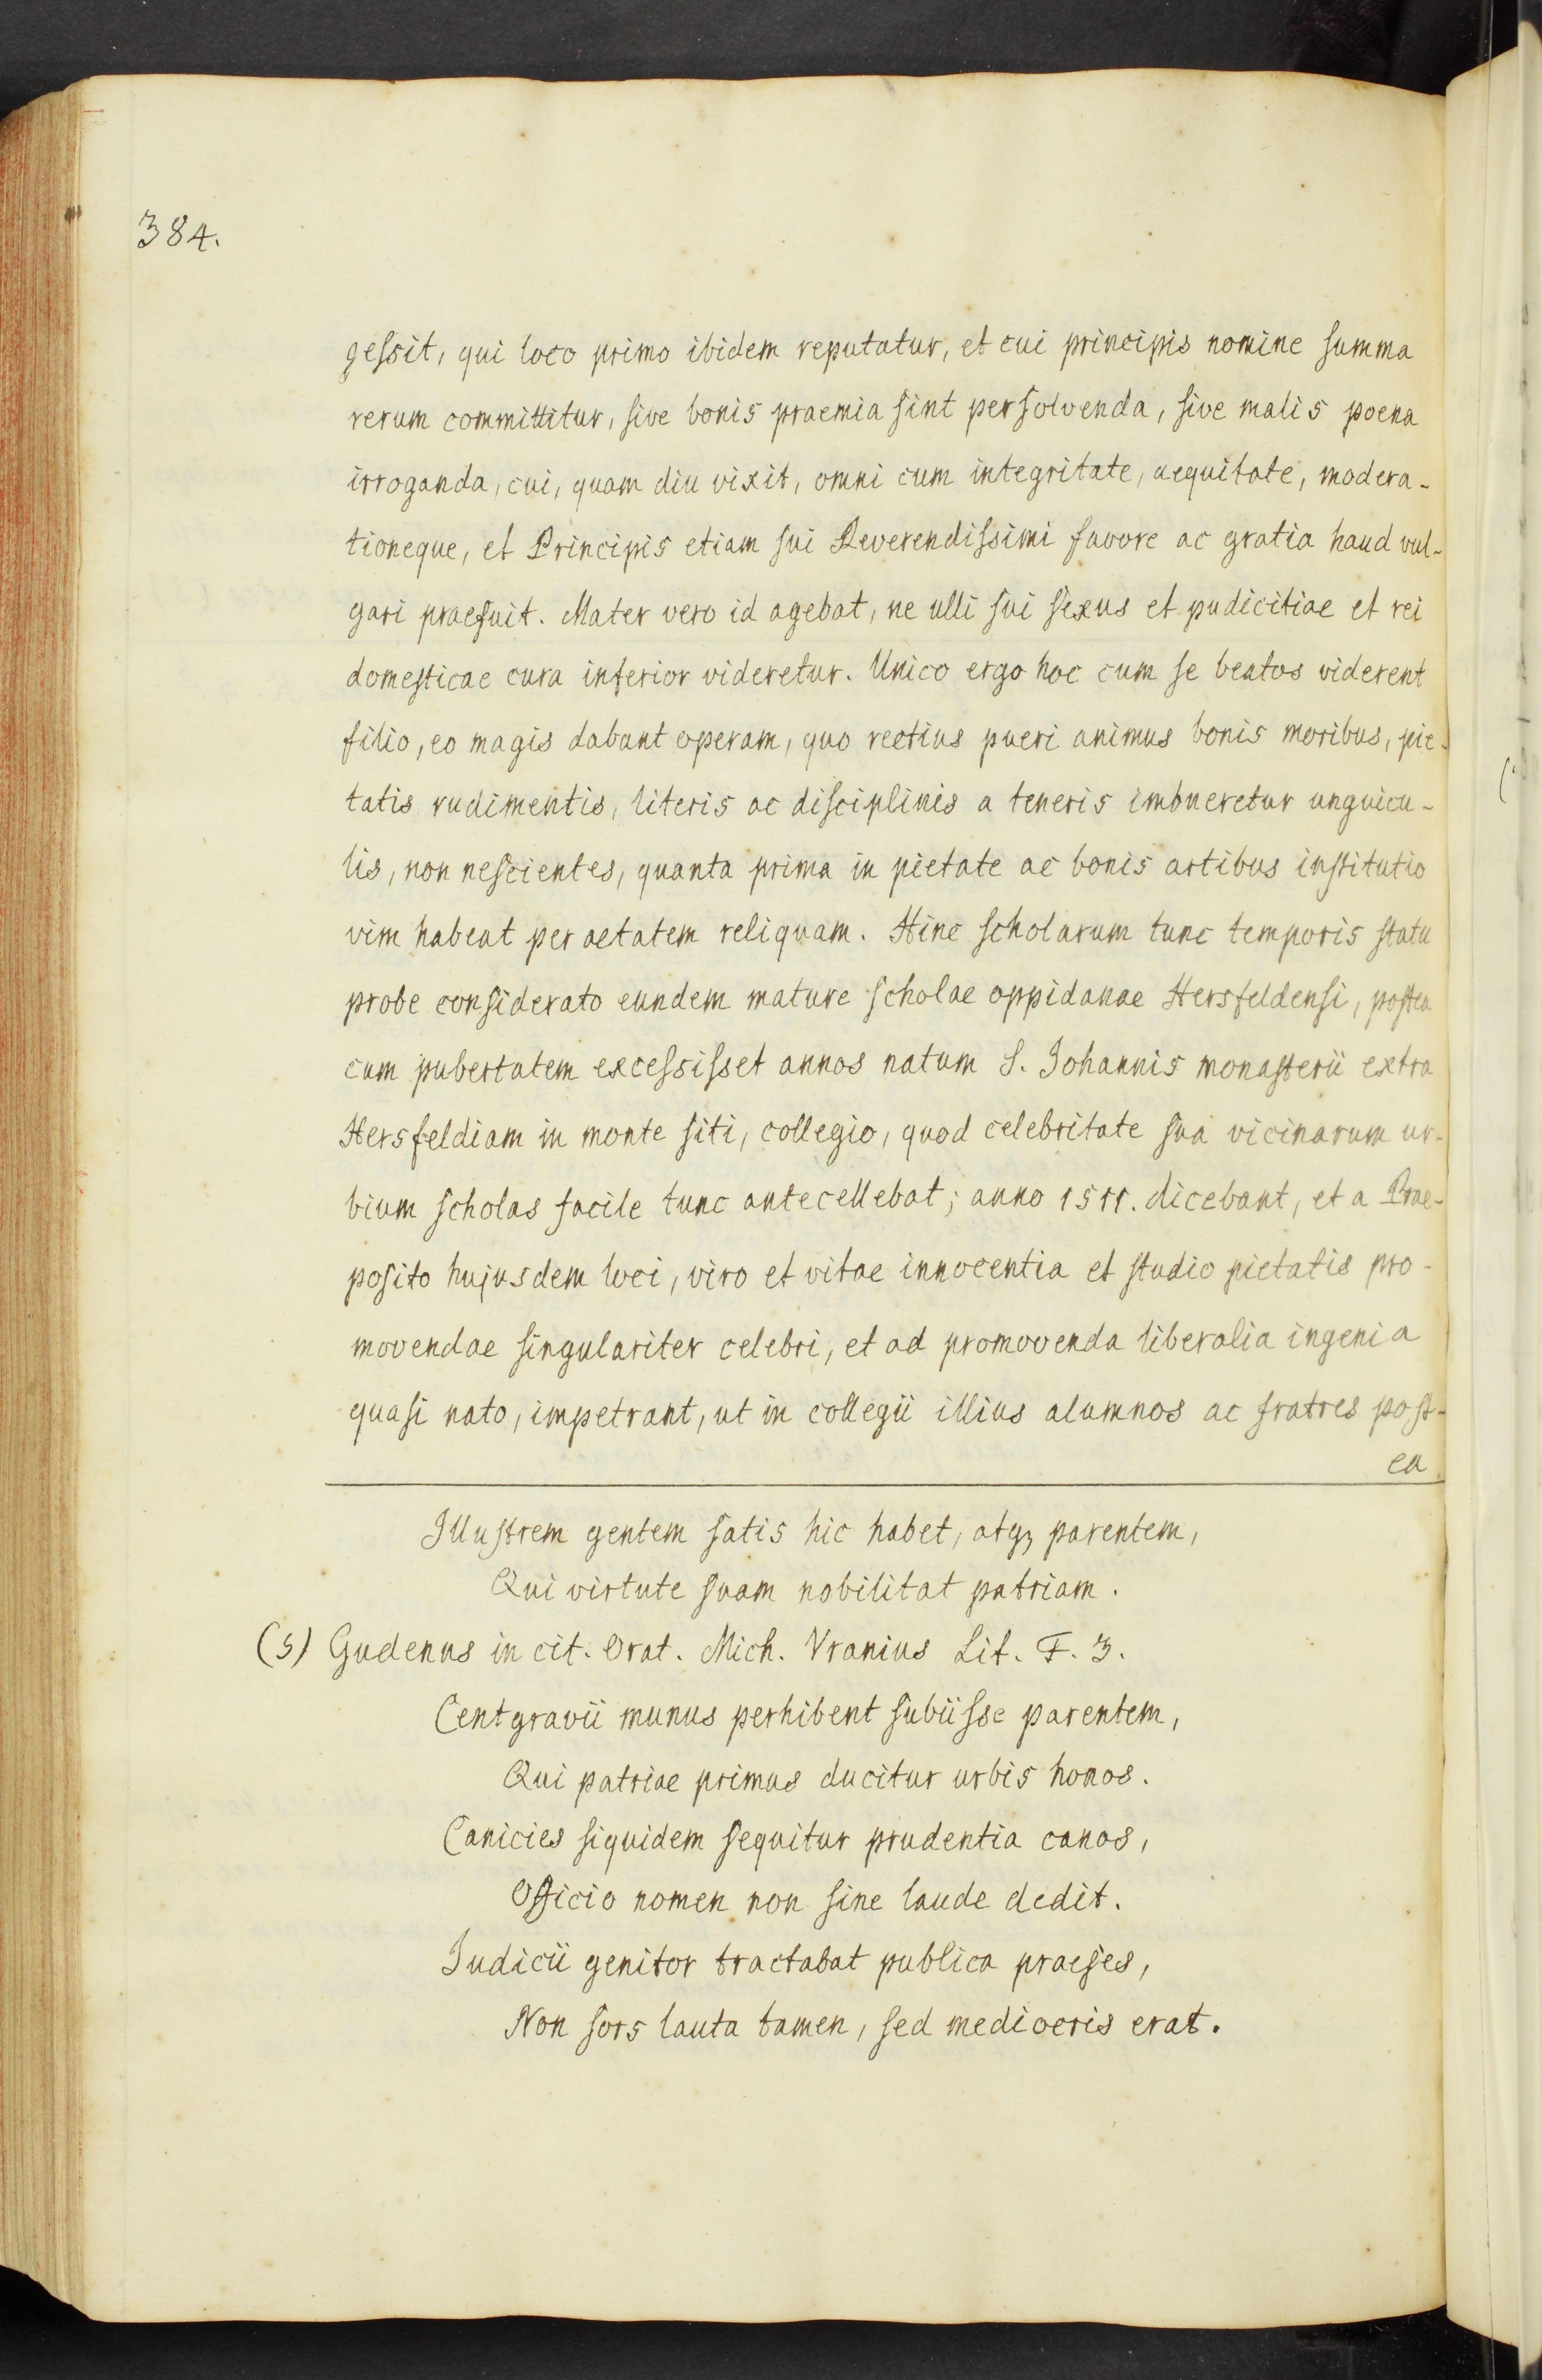 384.
gessit, qui loco primo ibidem reputatur, et cui principis nomine summa
rerum committitur, sive bonis praemia sint persolvenda, sive malis poena
irroganda, cui, quam diu vixit, omni cum integritate, aequitate, modera-
tioneque, et Principis etiam sui Reverendissimi favore ac gratia haud vul-
gari praefuit. Mater vero id agebat, ne ulli sui sexus et pudicitiae et rei
domesticae cura inferior videretur. Unico ergo hoc cum se beatos viderent
filio, eo magis dabant operam, quo rectius pueri animus bonis moribus, pie-
tatis rudimentis, literis ac disciplinis a teneris imbueretur unguicu-
lis, non nescientes, quanta prima in pietate ac bonis artibus institutio
vim habeat per aetatem reliquam. Hinc scholarum tunc temporis statu
probe considerato eundem mature scholae oppidanae Hersfeldensi, postea
cum pubertatem excessisset annos natum S. Johannis monasterii extra
Hersfeldiam in monte siti, collegio, quod celebritate sua vicinarum ur-
bium scholas facile tunc antecellebat; anno 1511. dicebant, et a Prae-
posito hujusdem loci, viro et vitae innocentia et studio pietatis pro-
movendae singulariter celebri, et ad promovenda liberalia ingenia
quasi nato, impetrant, ut in collegii illius alumnos ac fratres post-
ea
Illustrem gentem satis hic habet, atq; parentem,
Qui virtute suam nobilitat patriam.
(s) Gudenus in cit. Orat. Mich. Vranius Lit. F. 3.
Centgravii munus perhibent subiisse parentem,
Qui patriae primus ducitur urbis honos.
Canicies siquidem sequitur prudentia canos,
Officio nomen non sine laude dedit.
Judicii genitor tractabat publica praeses,
Non sors lauta tamen, sed mediocris erat.